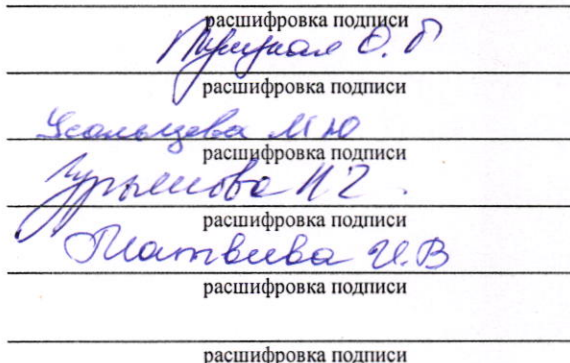 расшифровка подписи
О. Г
расшифровка подписи
Усольцева М Ю
расшифровка подписи
расшифровка подписи
Матвиева И.В
расшифровка подписи
расшифровка подписи